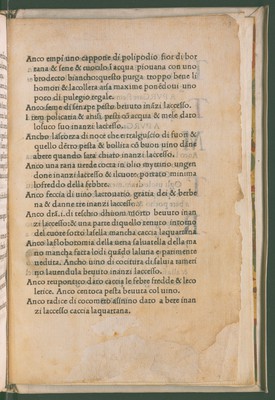 Anco empi uno cappone di polipodio fior di bor
rana & sene & cuoulo ĩ acqua piouana con uno
brodecto biancho: questo purga troppo bene li
homori & la collera arsa maxime ponẽdoui uno
poco di pulegio regale.
Anco seme di senape pesto beuuto inãzi laccesso.
I. tem policaria & anisi pesti cõ acqua & mele dato
lo suco suo inanzi laccesso.
Ancho la scorza di noce che e tral guscio di fuori &
quello dẽtro pesta & bollita cõ buon uino dãne
abere quando sara chiato inanzi laccesso.
Anco una rana uerde cocta in olio myrtino. ungen
done inanzi laccesso & il cuore portato minima
lo freddo della febbre.
Anco feccia di uino lactouario. gratia dei & berbe
na & danne tre inanzi laccesso.
Anco dra. i. di teschio dhuom morto beuuto inan
zi laccesso: & una parte di quello tenuto intorno
del cuore sotto lasella mancha caccia la quartana.
Anco la flobotomia della uena saluatella della ma
no mancha facta lo di quãdo la luna e parimente
ueduta. Ancho uino di coctitura di saluia rameri
no lauendula beuuto inanzi laccesso.
Anco reupontico dato caccia le febre fredde & leco
lerice. Anco centoca pesta beuuta col uino.
Anco radice di cocomero assinino dato a bere inan
zi laccesso caccia la quartana.